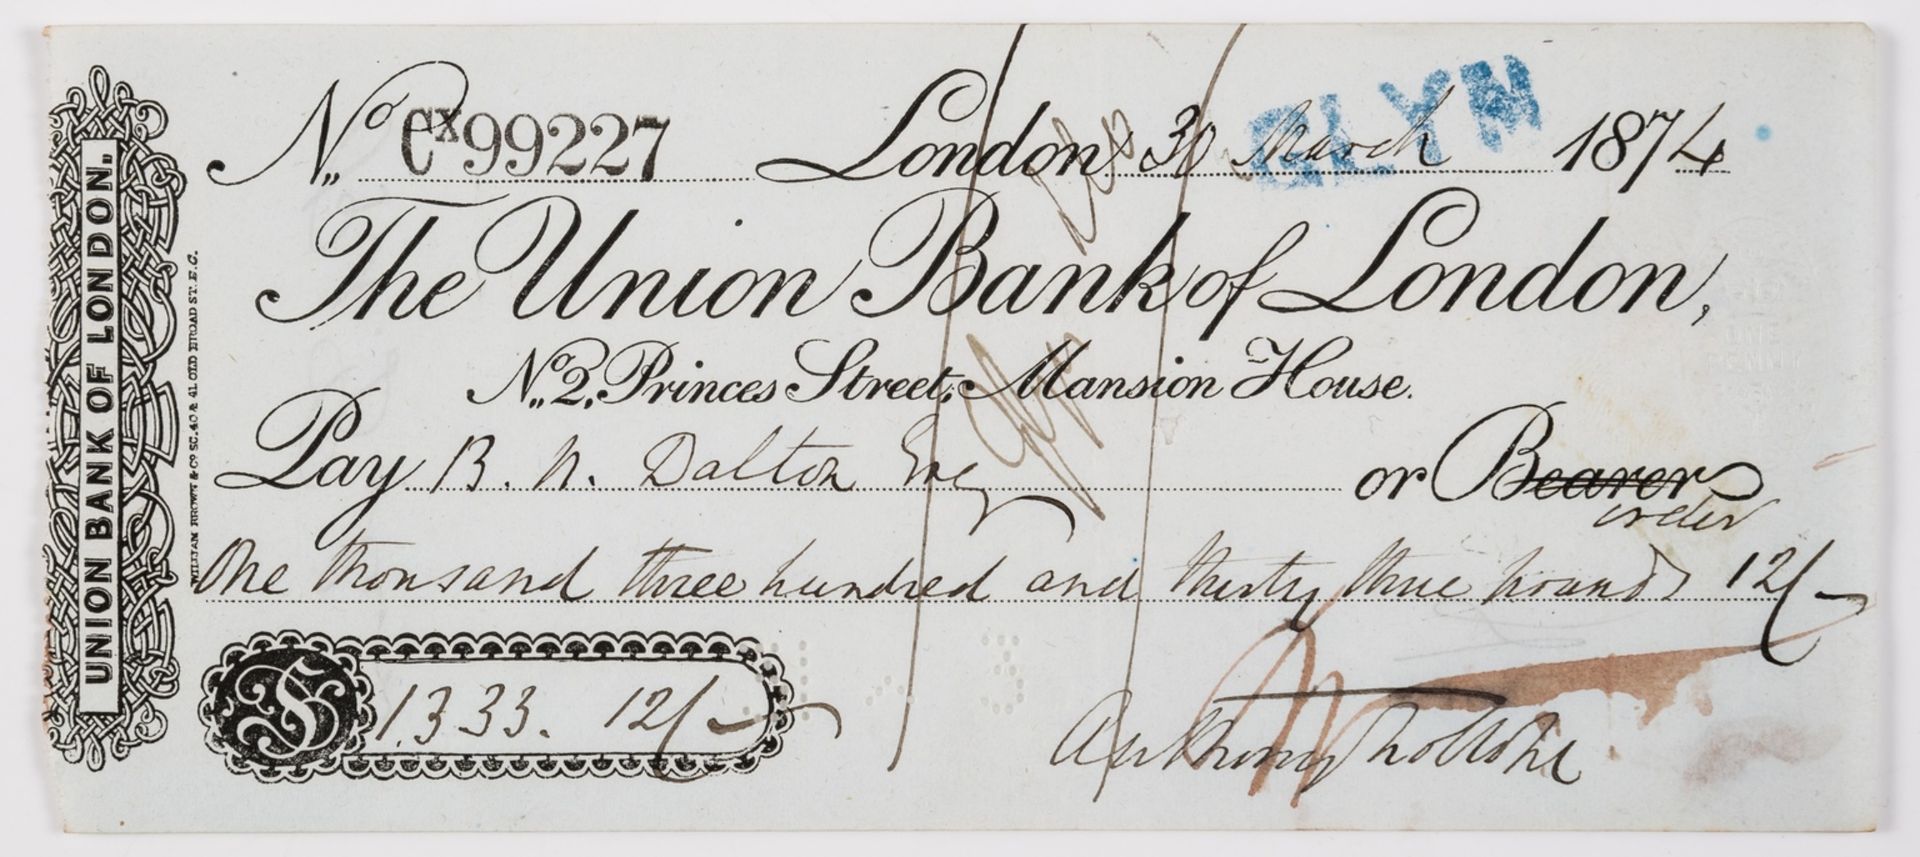 UNION BANK OF LONDON.
WILLIAM BROWN & Co SC. 40 & 41 OLD BROAD ST. E.C.
No. Cx99227 London 30 March 1874
GLYN
The Union Bank of London,
No. 2, Princes Street, Mansion House.
Pay B. N. Dalton Esq or Bearer
order
One thousand three hundred and thirty three pounds 12/-
£ 1.333. 12/-
Anthony Trollope